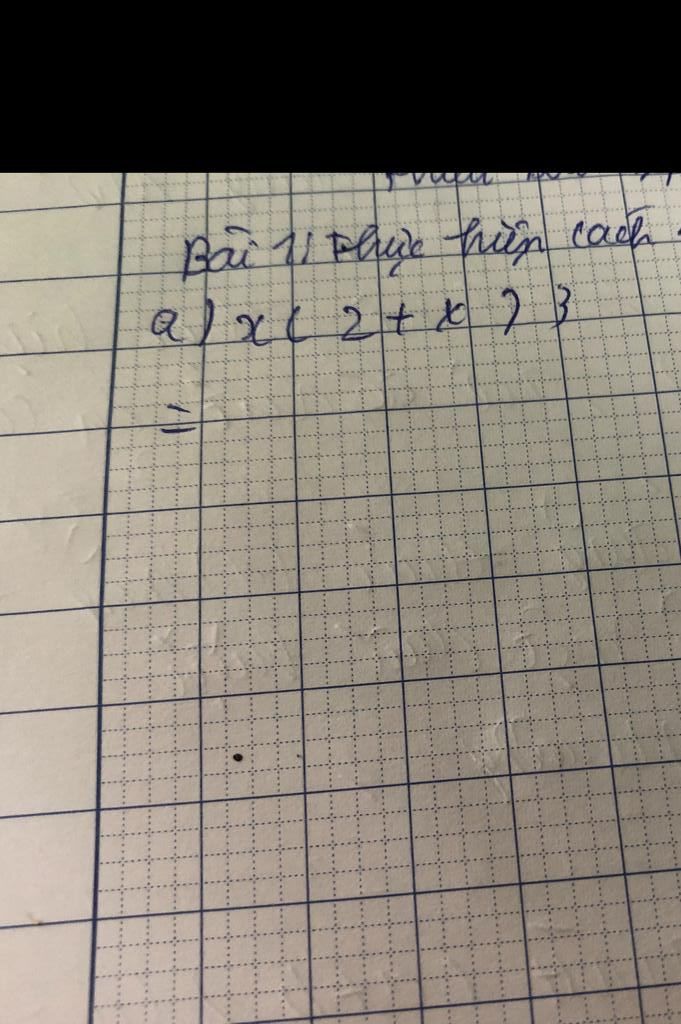 Bài 1: Thực hiện cách
a) x( 2 + x ) }
=